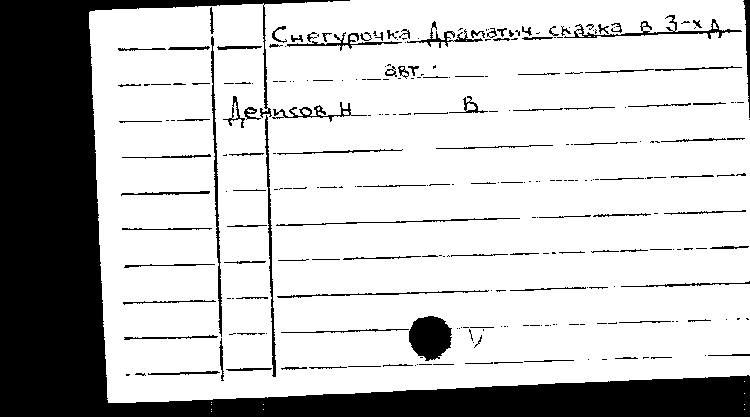 Снегурочка Драматич. сказка в 3-х д.
авт.:
Денисов, Н В.
V